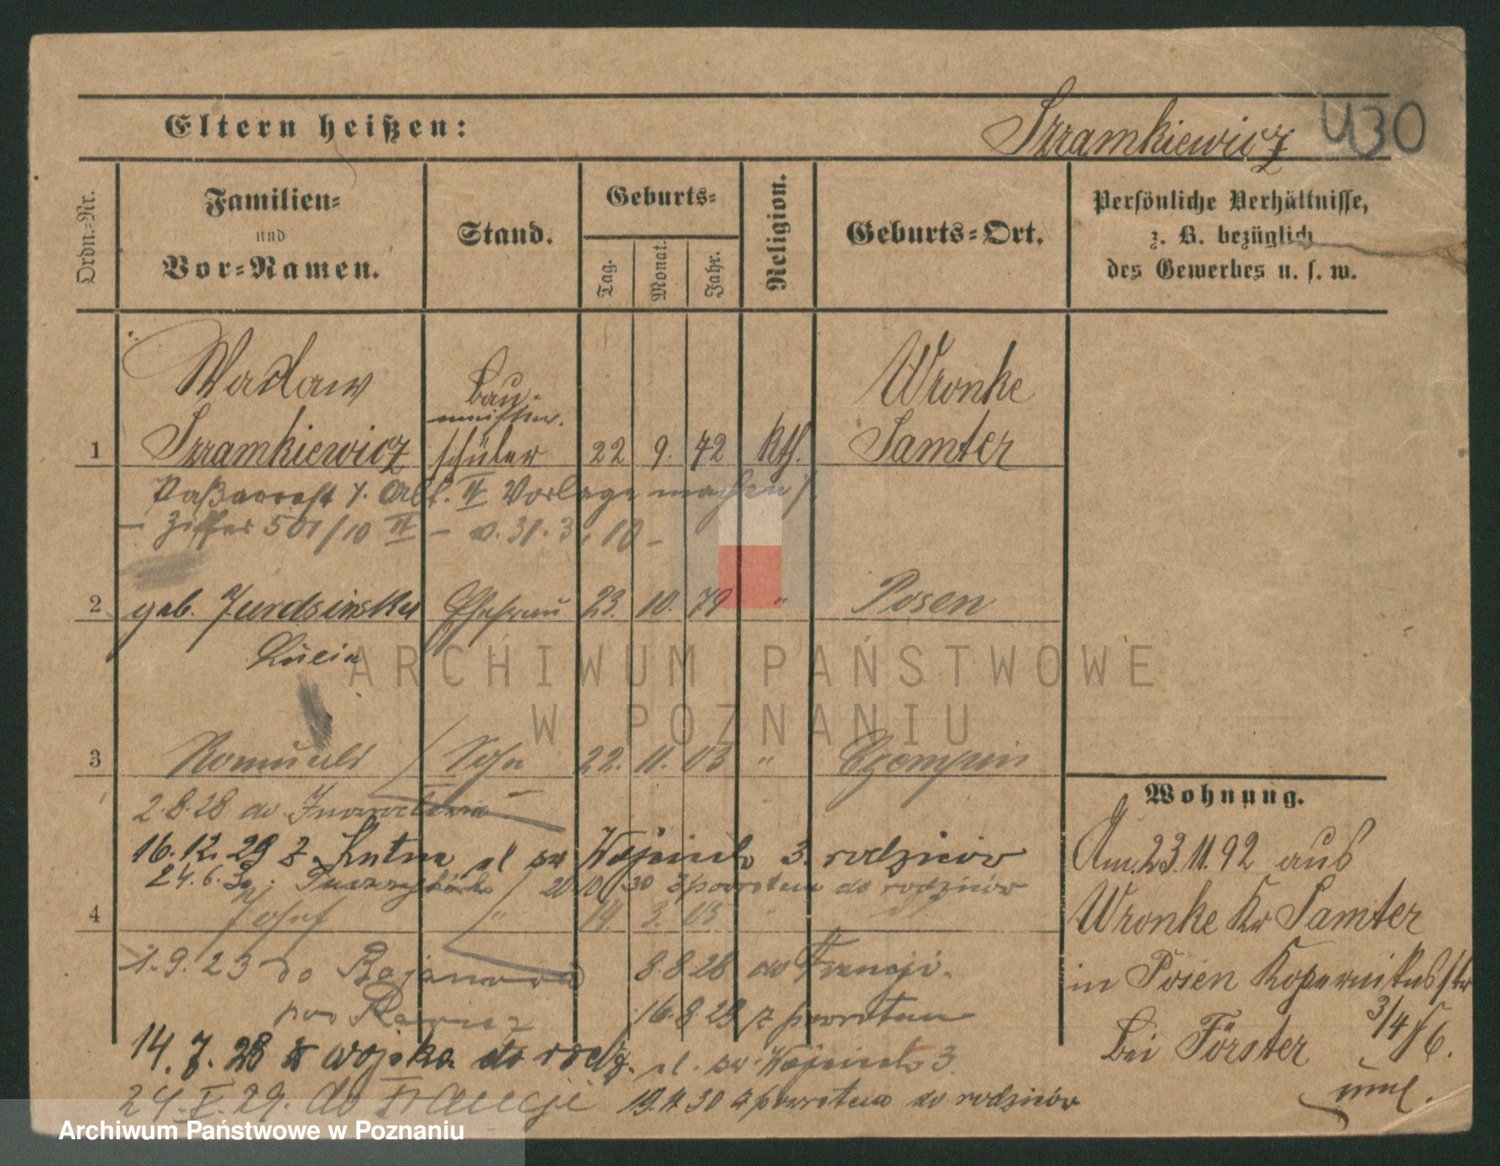 Eltern heißen:
Szramkiewicz
430
Ordn.-Nr.
Familien-
und
Vor-Namen.
Stand.
Geburts-
Tag.
Monat.
Jahr.
Religion.
Geburts-Ort.
Persönliche Verhältnisse,
z. B. bezüglich
des Gewerbes u. s. w.
Wacław Bau- Wronke
1 Szramkiewicz schüler 22 9. 72 Kth. Samter
II Vorlage machen
Ziffer 501/10 II - v. 31.3.10 -
2 geb. Ehefrau 23. 10. 79 " Posen
Lucia
ARCHIWUM PAŃSTWOWE
W POZNANIU
3 Romuald Sohn 22. 11. 03 " Czempin
2.8.28 do
16.12.29 z Kutna pl św Wojciech 3. rodziców
24.6.30 30 z powrotem do rodziców
4 Josef " 19. 3. 05 "
1.9.23 do 8.8.28 do Francji.
pow 16.8.28 z powrotem
14.7.28 z wojska do rodz. pl. św. Wojciech 3.
24.I.29. do Francji 19.4.30 z powrotem do rodziców
Wohnung.
Am 23.11.92 aus
Wronke Kr Samter
in Posen Kopernikusstr
3/4 86.
bei Förster
Archiwum Państwowe w Poznaniu